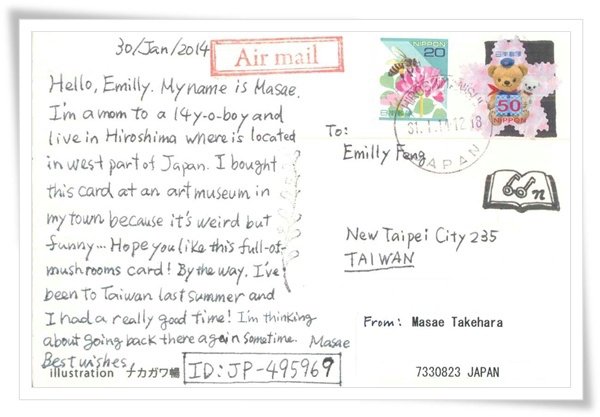 30/Jan/2014
Air mail
Hello, Emilly. My name is Masae.
I'm a mom to a 14y-o-boy and
live in Hiroshima where is located
in west part of Japan. I bought
this card at an art museum in
my town because it's weird but
funny... Hope you like this full-of-
mushrooms card! By the way, I've
been to Taiwan last summer and
I had a really good time! I'm thinking
about going back there again sometime. Masae
Best wishes,
illustration ナカガワ暢
ID: JP-495969
NIPPON
20
日本郵便
50
NIPPON
31.1.14 12-18
JAPAN
To:
Emilly Feng
n
New Taipei City 235
TAIWAN
From: Masae Takehara
7330823 JAPAN